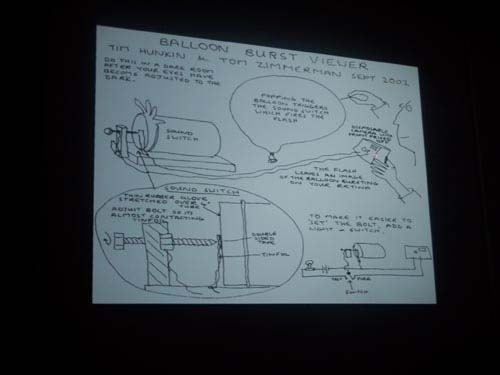 BALLOON BURST VIEWER
TIM HUNKIN & TOM ZIMMERMAN SEPT 2002
DO THIS IN A DARK ROOM
AFTER YOUR EYES HAVE
BECOME ADJUSTED TO THE
DARK.
SOUND
SWITCH
POPPING THE
BALLOON TRIGGERS
THE SOUND SWITCH
WHICH FIRES THE
FLASH
DISPOSABLE
CAMERA WITH
THE FLASH
LEAVES AN IMAGE
OF THE BALLOON BURSTING
ON YOUR RETINA
SOUND SWITCH
THIN RUBBER GLOVE
STRETCHED OVER 4"
TUBE
ADJUST BOLT SO ITS
ALMOST CONTACTING
TINFOIL
DOUBLE
SIDED
TAPE
TINFOIL
TO MAKE IT EASIER TO
'SET' THE BOLT, ADD A
LIGHT & SWITCH.
SET
FIRE
SWITCH